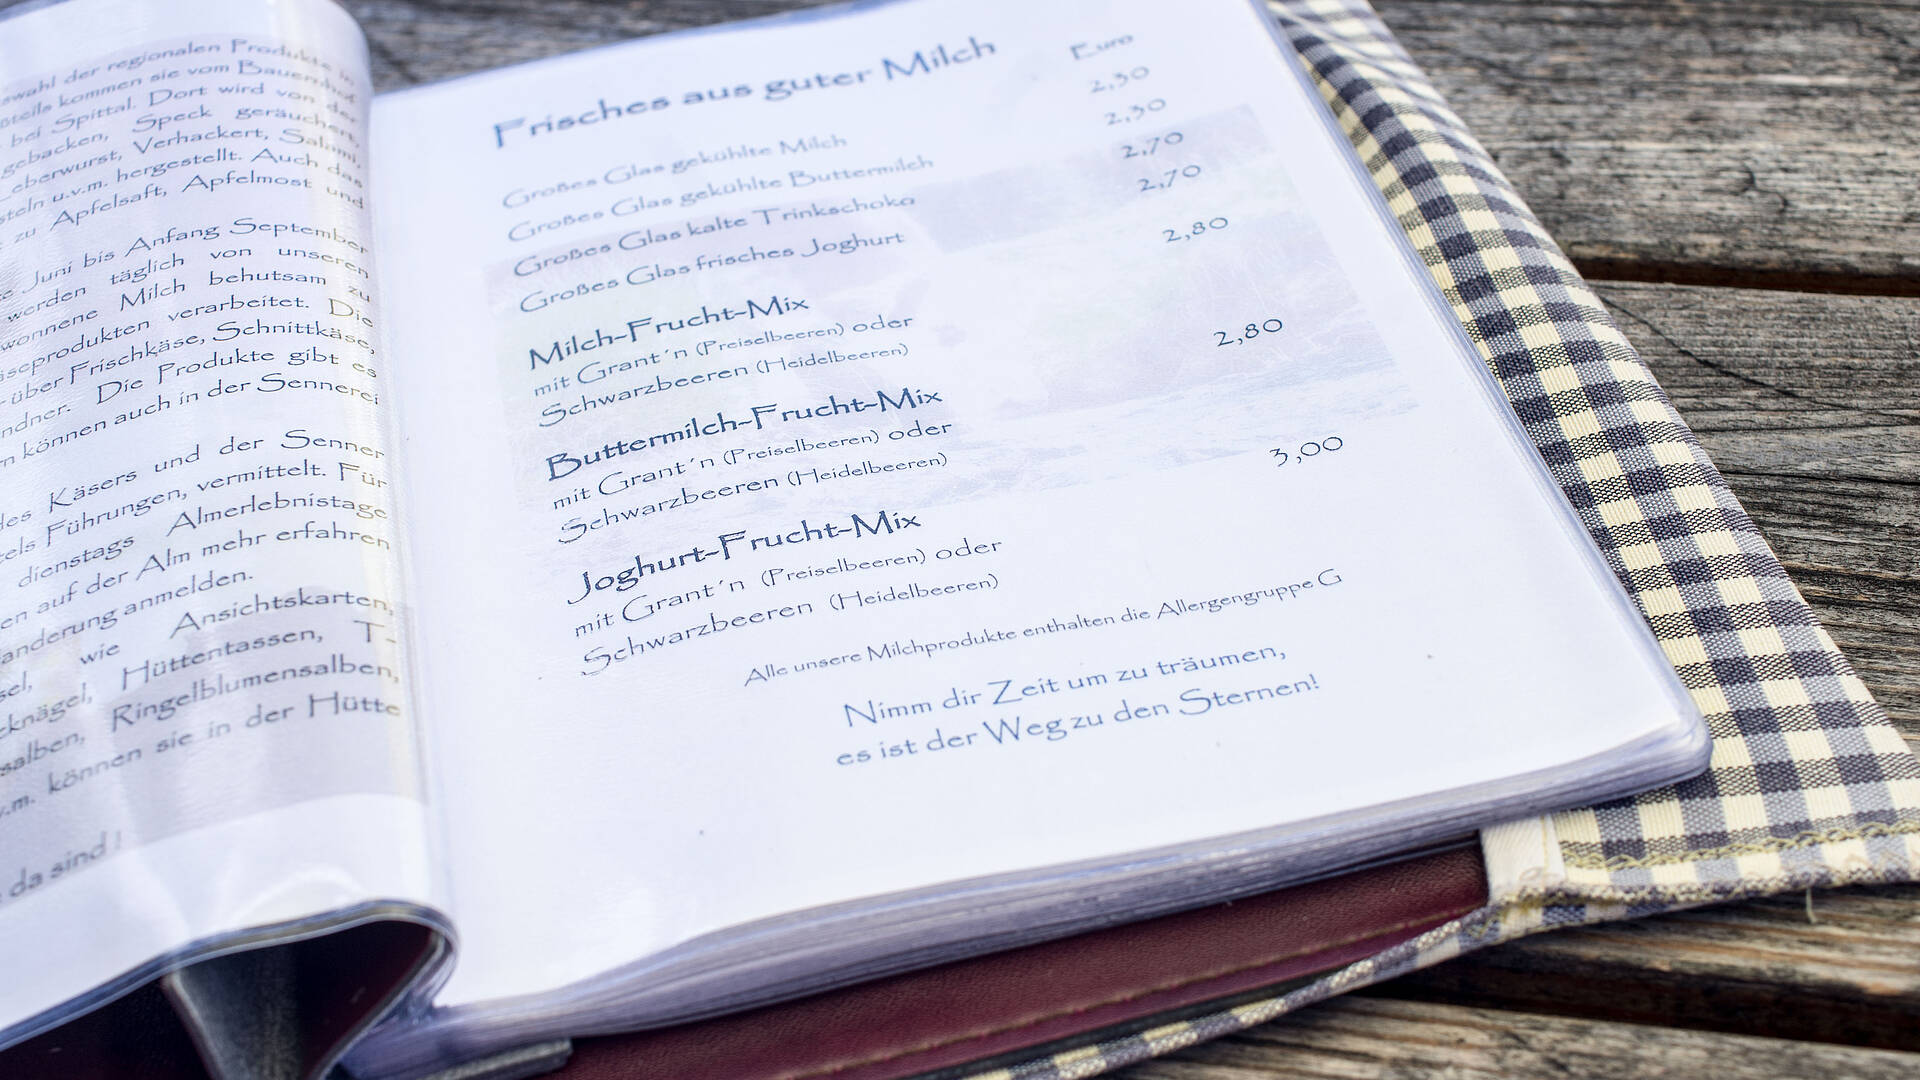 swahl der regionalen Produkte in
ßteils kommen sie vom Bauernhof
bei Spittal. Dort wird von der
gebacken, Speck geräuchert,
eberwurst, Verhackert, Salami,
steln u.v.m. hergestellt. Auch das
zu Apfelsaft, Apfelmost und
Juni bis Anfang September
werden täglich von unseren
wonnene Milch behutsam zu
äseprodukten verarbeitet. Die
über Frischkäse, Schnittkäse,
ndner. Die Produkte gibt es
n können auch in der Sennerei
des Käsers und der Senner
tels Führungen, vermittelt. Für
dienstags Almerlebnistage
en auf der Alm mehr erfahren
anderung anmelden.
sel, wie Ansichtskarten,
cknägel, Hüttentassen, T-
salben, Ringelblumensalben,
v.m. können sie in der Hütte
da sind !
Frisches aus guter Milch Euro
Großes Glas gekühlte Milch 2,30
Großes Glas gekühlte Buttermilch 2,30
Großes Glas kalte Trinkschoko 2,70
Großes Glas frisches Joghurt 2,70
Milch-Frucht-Mix 2,80
mit Grant´n (Preiselbeeren) oder
Schwarzbeeren (Heidelbeeren)
Buttermilch-Frucht-Mix 2,80
mit Grant´n (Preiselbeeren) oder
Schwarzbeeren (Heidelbeeren)
Joghurt-Frucht-Mix 3,00
mit Grant´n (Preiselbeeren) oder
Schwarzbeeren (Heidelbeeren)
Alle unsere Milchprodukte enthalten die Allergengruppe G
Nimm dir Zeit um zu träumen,
es ist der Weg zu den Sternen!